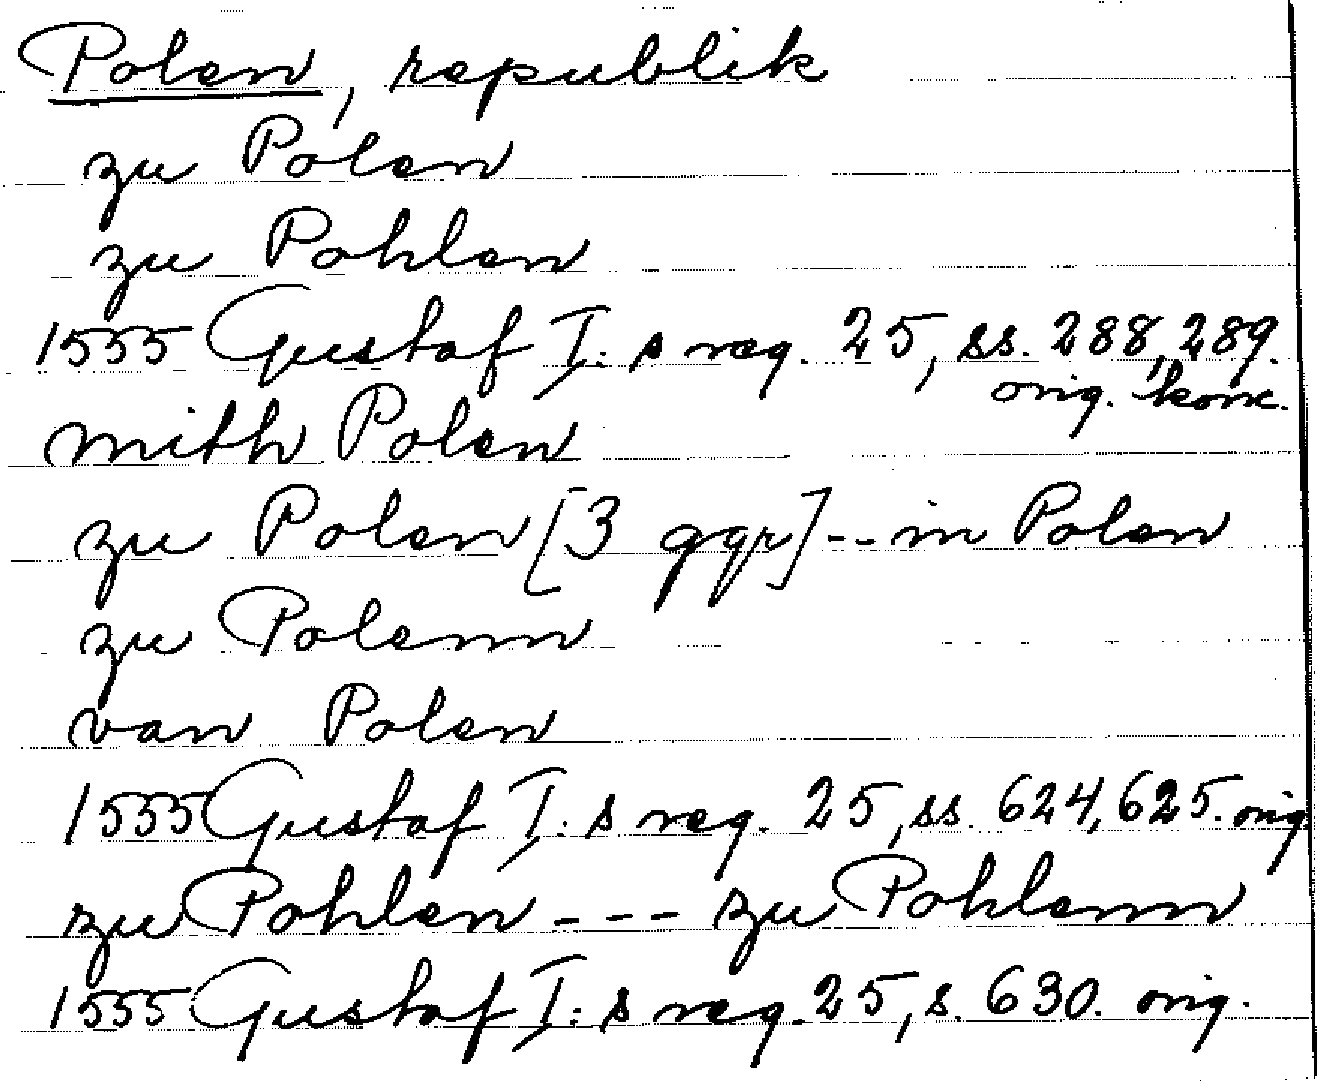 Polen, republik
zu Polen
zu Pohlen
1555 Gustaf I:s reg. 25, ss. 288, 289.
orig. konc.
mith Polen
zu Polen [3 ggr] -- in Polen
zu Polenn
van Polen
1555 Gustaf I:s reg. 25, ss. 624, 625. orig.
zu Pohlen --- zu Pohlenn
1555 Gustaf I:s reg. 25, s. 630. orig.